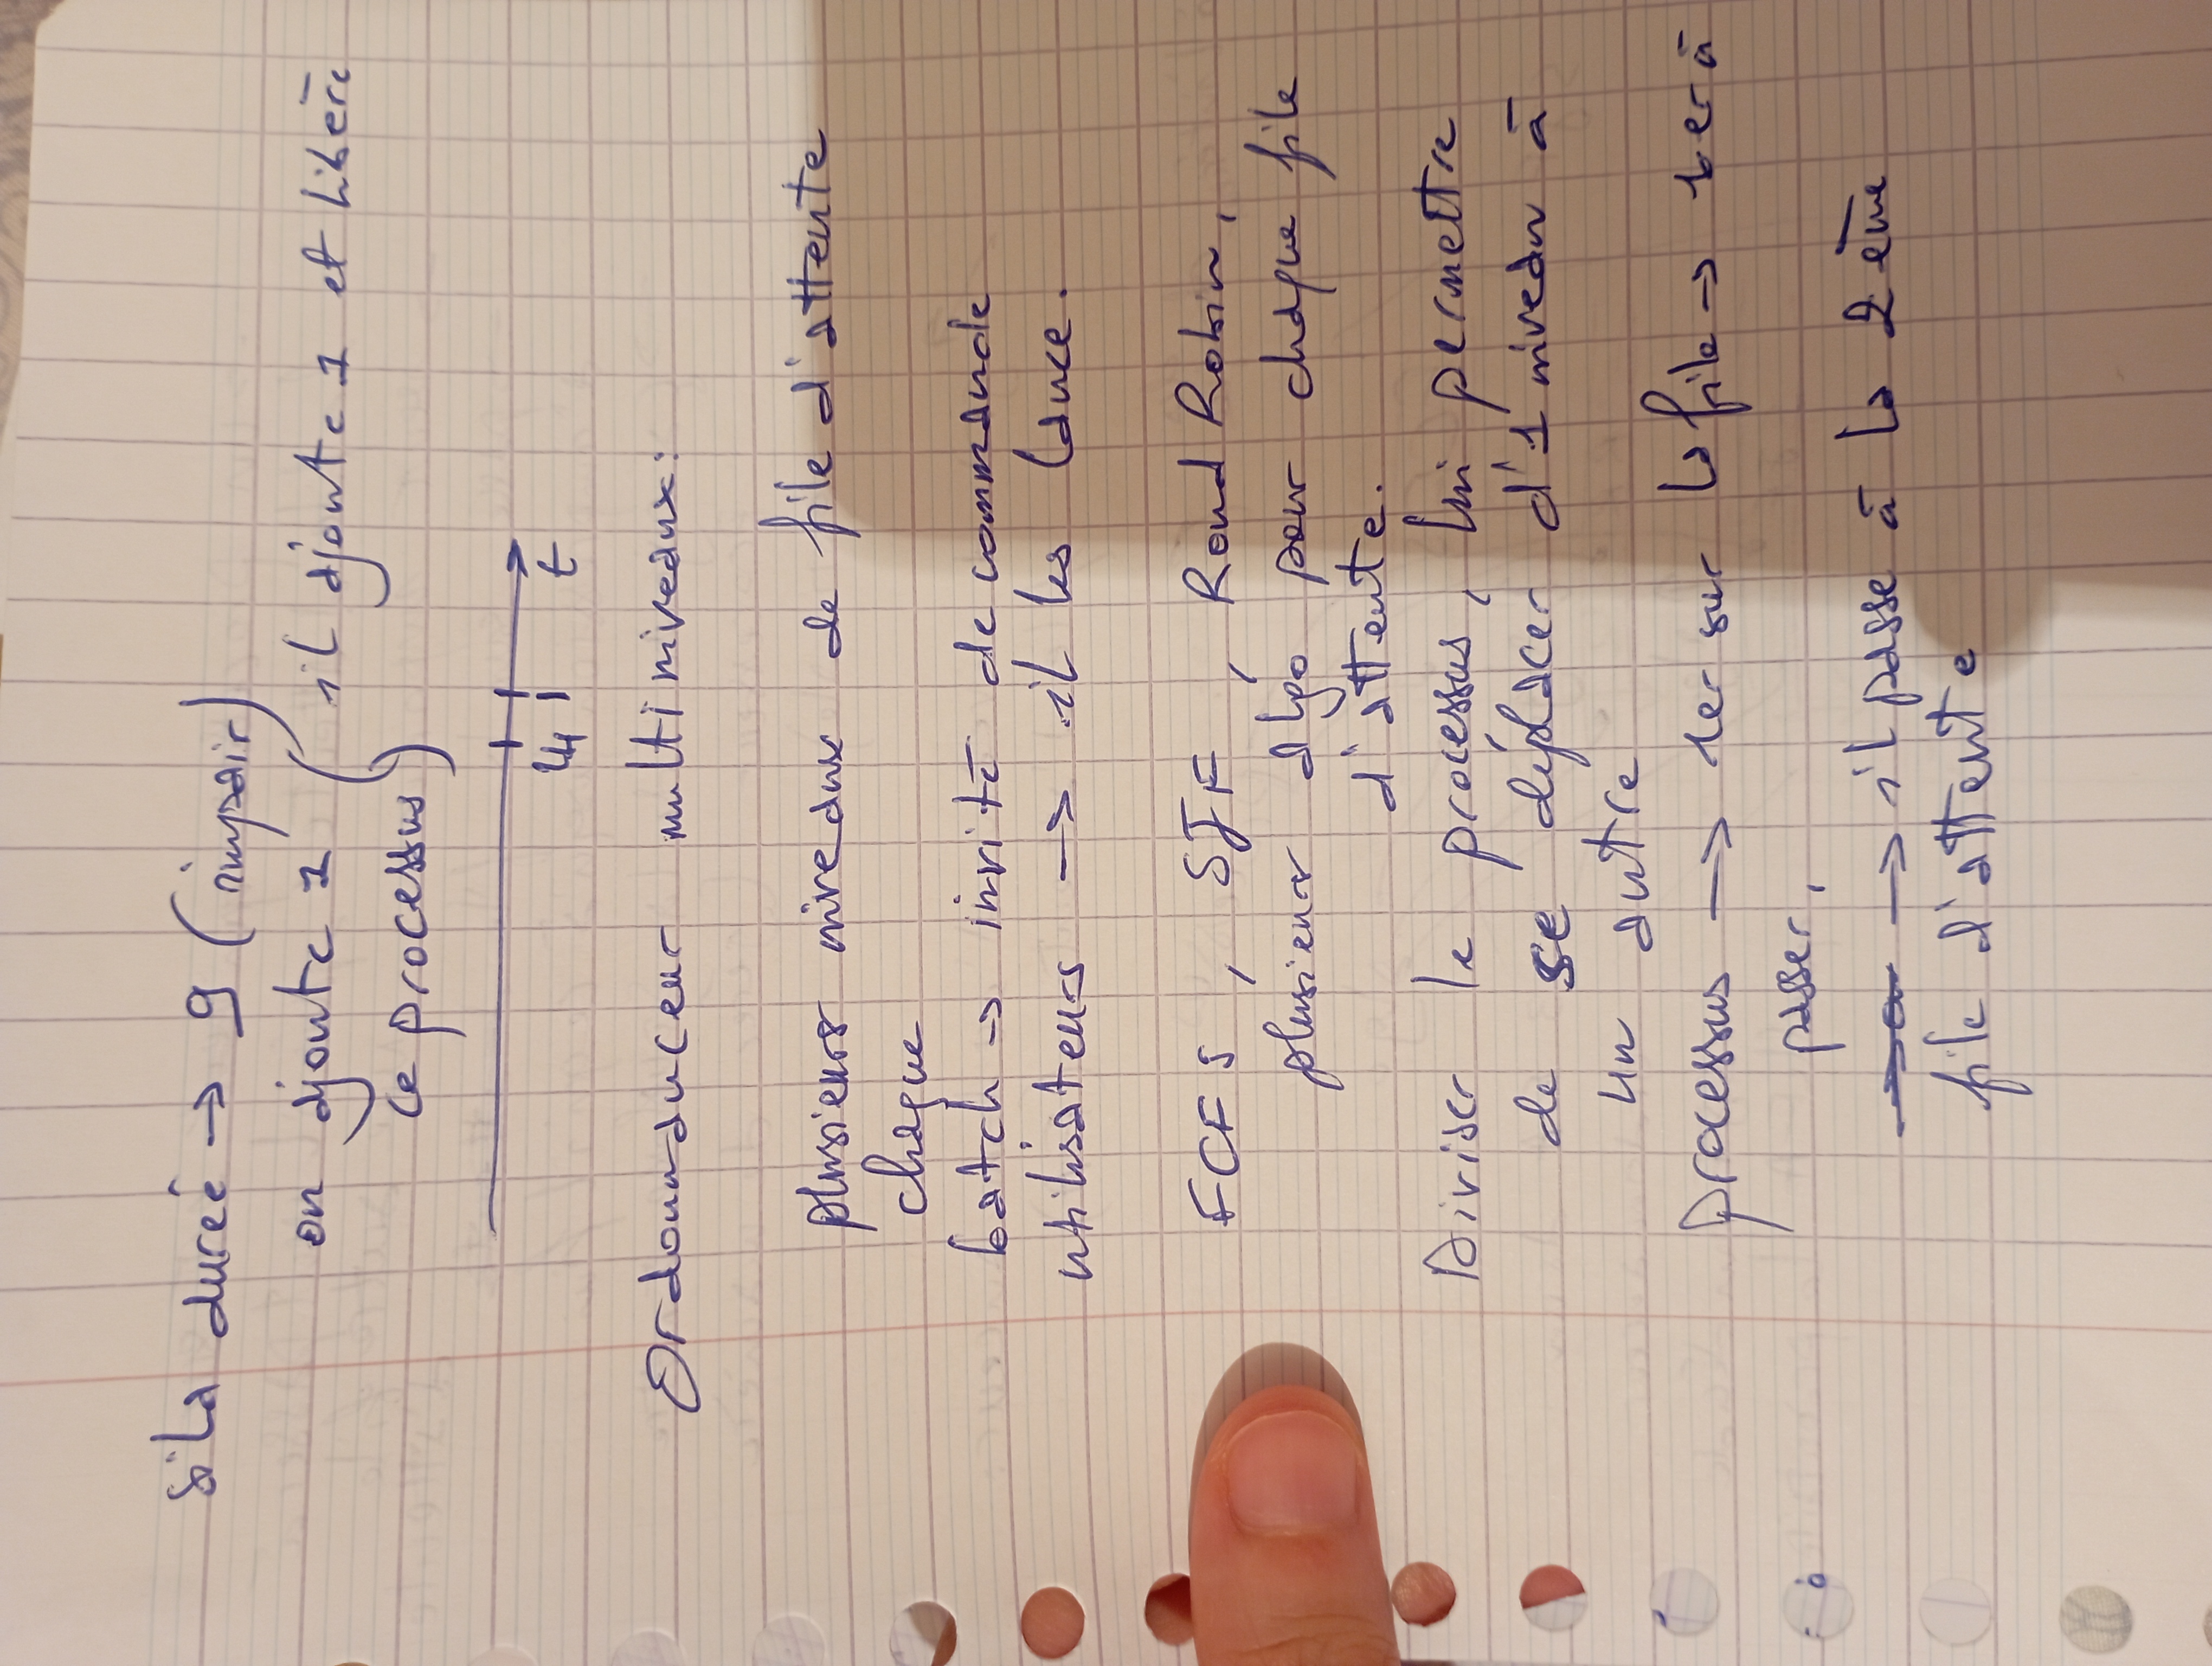 si la dureé → 9 (impair)
on ajoute 1 (il ajoute 1 et libère
ce processus)
4 1 t
Ordonnanceur multiniveaux:
plusieurs niveaux de file d'attente
chaque
batch → invité de commande
utilisateurs → il les lance.
FCFS, SJF, Round Robin,
plusieurs algo pour chaque file
d'attente.
Diviser le processus, lui permettre
de se déplacer d'1 niveau à
un autre
processus → 1er sur la file → 1er à
passer,
→ il passe à la 2ème
file d'attente